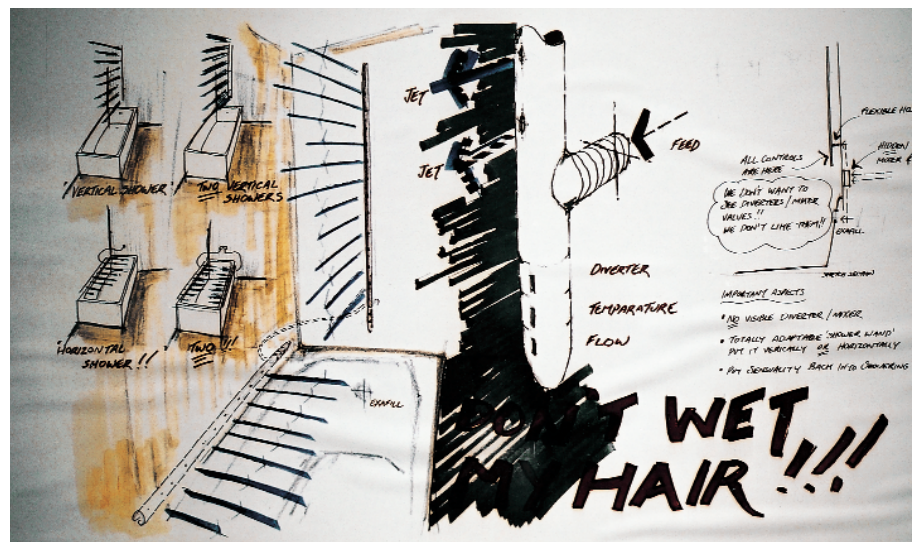 "VERTICAL SHOWER"
TWO VERTICAL
SHOWERS
"HORIZONTAL
SHOWER !!
TWO !!!
JET
JET
FEED
DIVERTER
TEMPARATURE
FLOW
EXAFILL
FLEXIBLE HO
HIDDEN
MIXER &
ALL CONTROLS
ARE HERE
WE DON'T WANT TO
SEE DIVERTERS / MIXER
VALVES !!
WE DON'T LIKE THEM!!
EXAFILL
SKETCH SECTION
IMPORTANT ASPECTS
• NO VISIBLE DIVERTER / MIXER
• TOTALLY ADAPTABLE 'SHOWER WAND'
PUT IT VERICALLY OR HORIZONTALLY
• PUT SENSUALITY BACK INTO SHOWERING
DON'T WET
MY HAIR !!!